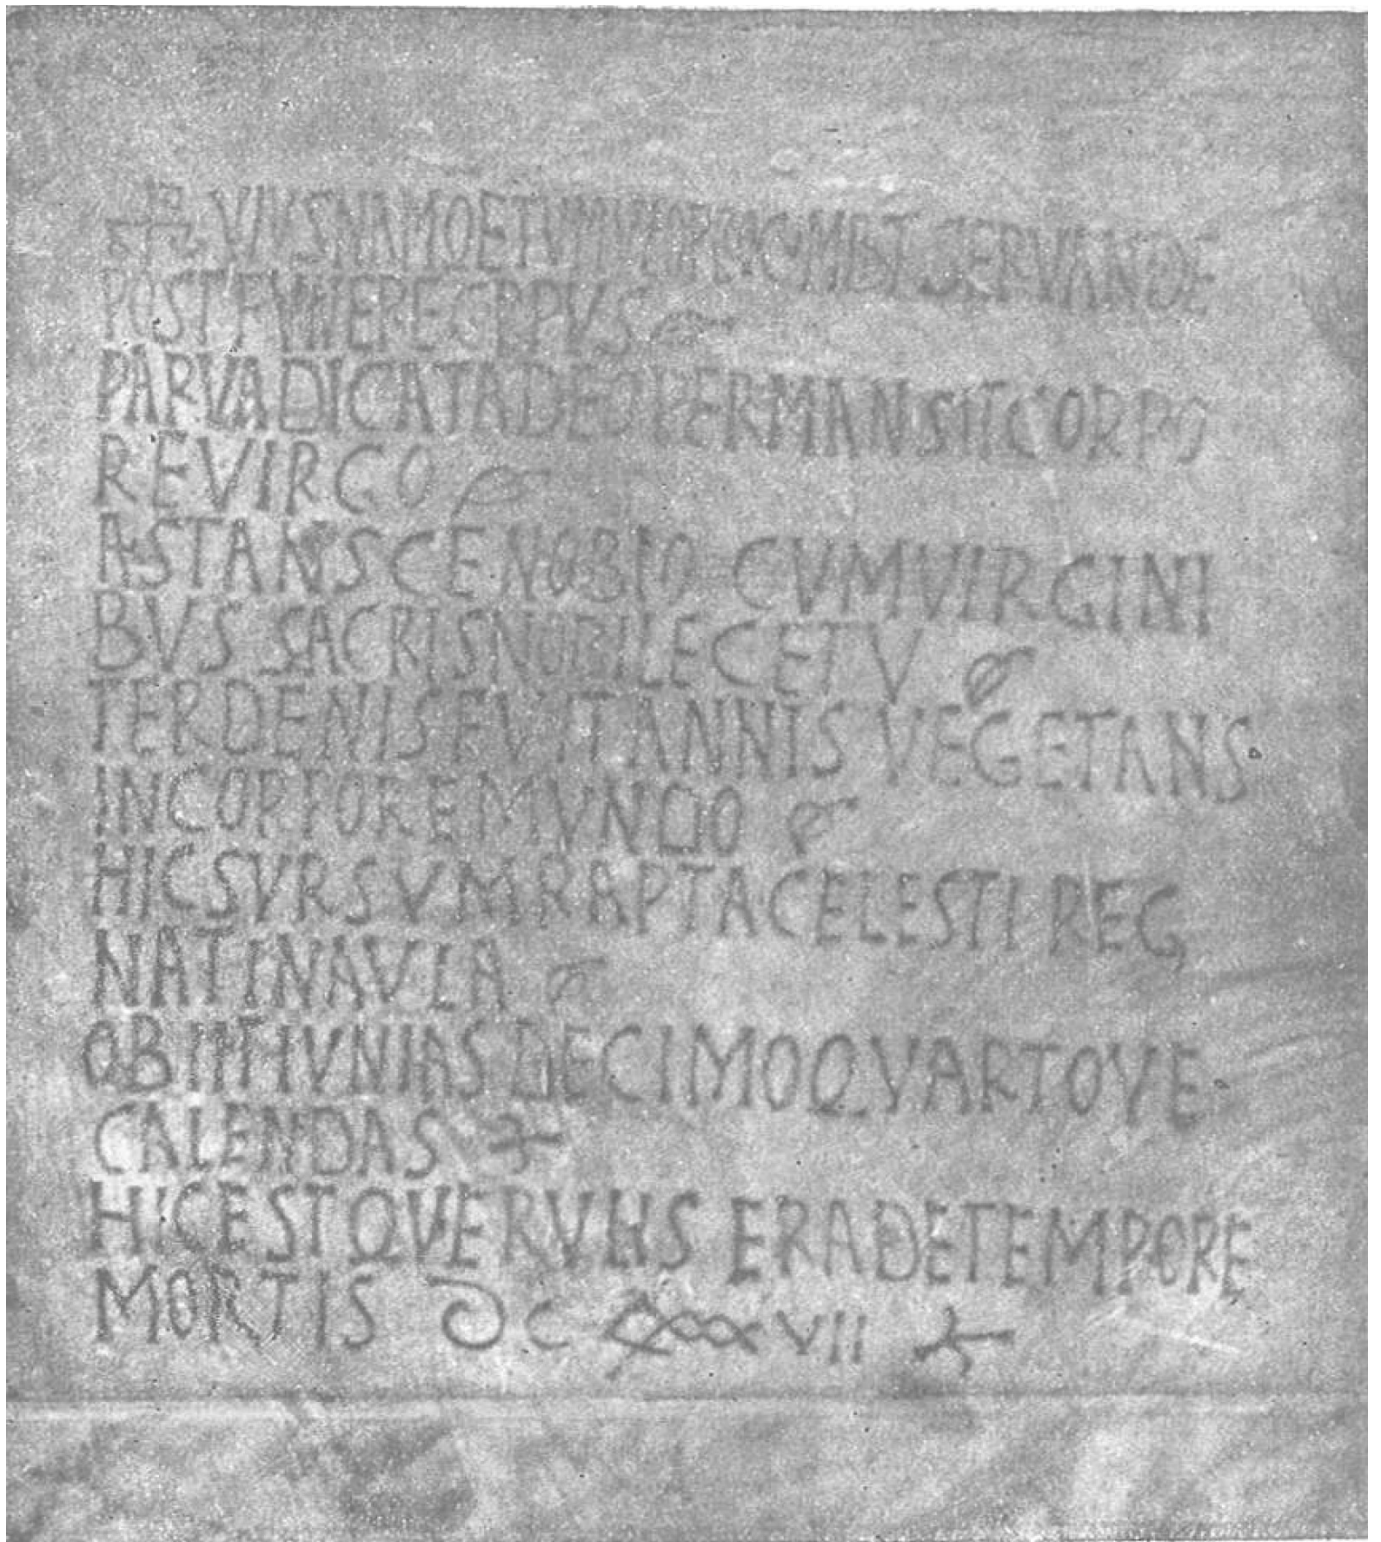 SERVANDE
POST FVNERE CORPVS
PARVA DICATA DEO PERMANSIT CORPO
RE VIRGO
ASTANS CENOBIO CVM VIRGINI
BVS SACRIS NOBILE CETV
TER DENIS FVIT ANNIS VEGETANS
IN CORPORE MVNDO
HIC SVRSVM RAPTA CELESTI REG
NAT IN AVLA
OBIIT IVNIAS DECIMO QVARTO VE
CALENDAS
HIC EST QVERVLIS ERA DE TEMPORE
MORTIS DC XXXVII